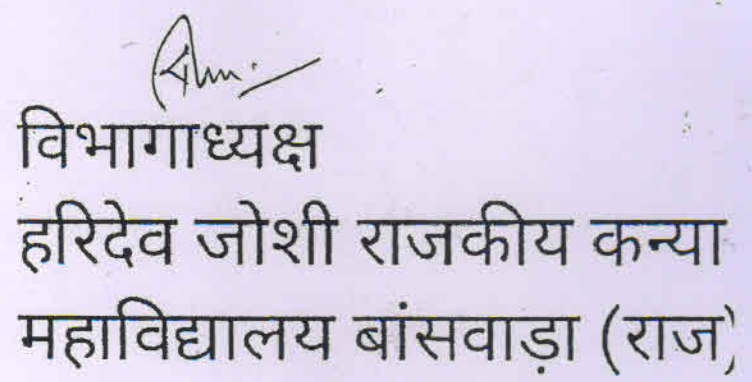 विभागाध्यक्ष
हरिदेव जोशी राजकीय कन्या
महाविद्यालय बांसवाड़ा (राज)